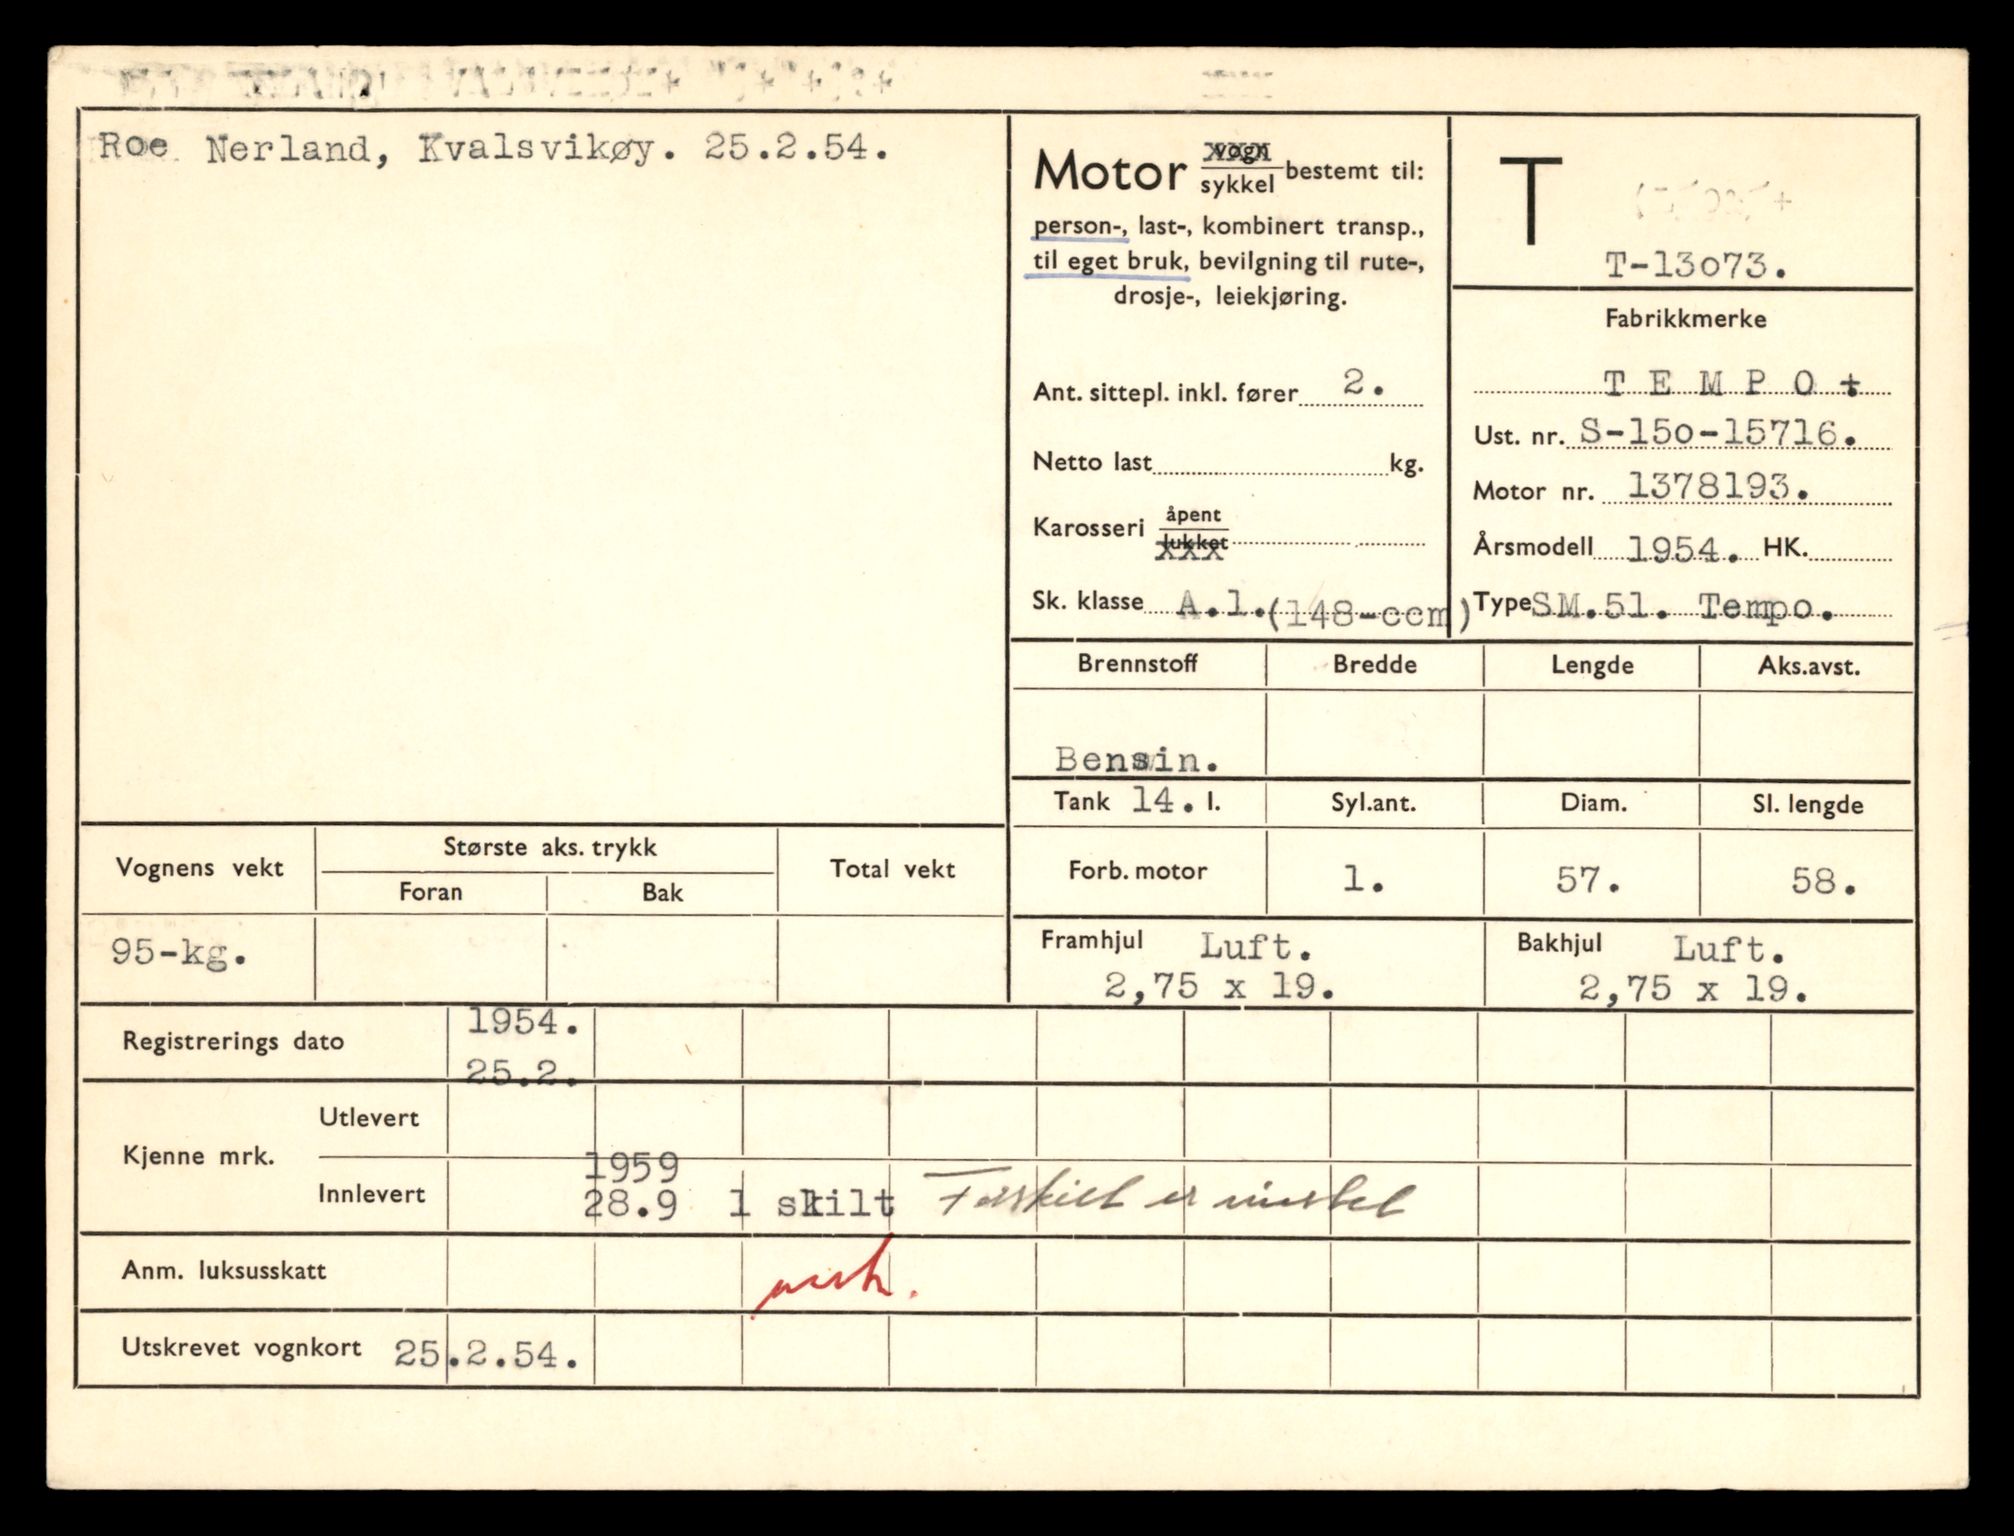 Roe Nerland, Kvalsvikøy. 25.2.54.
Motor vogn sykkel bestemt til:
person-, last-, kombinert transp.,
til eget bruk, bevilgning til rute-,
drosje-, leiekjøring.
Ant. sittepl. inkl. fører 2.
Netto last kg.
Karosseri åpent lukket
Sk. klasse A.1.(148-ccm)
T
T-13o73.
Fabrikkmerke
T E M P O
Ust. nr. S-15o-15716.
Motor nr. 1378193.
Årsmodell 1954. HK.
Type SM.51. Tempo.
Brennstoff Bredde Lengde Aks.avst.
Bensin.
Tank 14. l. Syl.ant. Diam. Sl. lengde
Forb. motor 1. 57. 58.
Framhjul Luft. Bakhjul Luft.
2,75 x 19. 2,75 x 19.
Vognens vekt Største aks. trykk Total vekt
Foran Bak
95-kg.
1954.
Registrerings dato
25.2.
Utlevert
Kjenne mrk.
1959
Innlevert 28.9 1 skilt Forskilt er mistet
Anm. luksusskatt
Utskrevet vognkort 25.2.54.